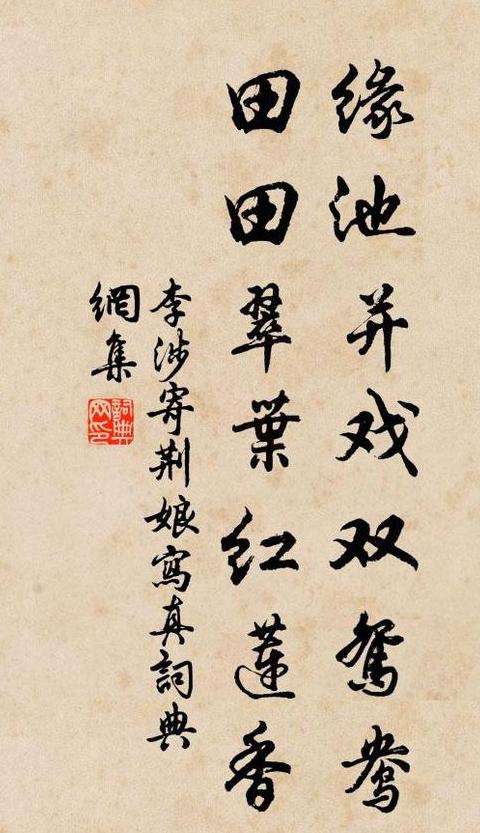 缘池并戏双鸳鸯
田田翠葉红蓮香
李涉寄荆娘寫真詞典
網集
詞典网印